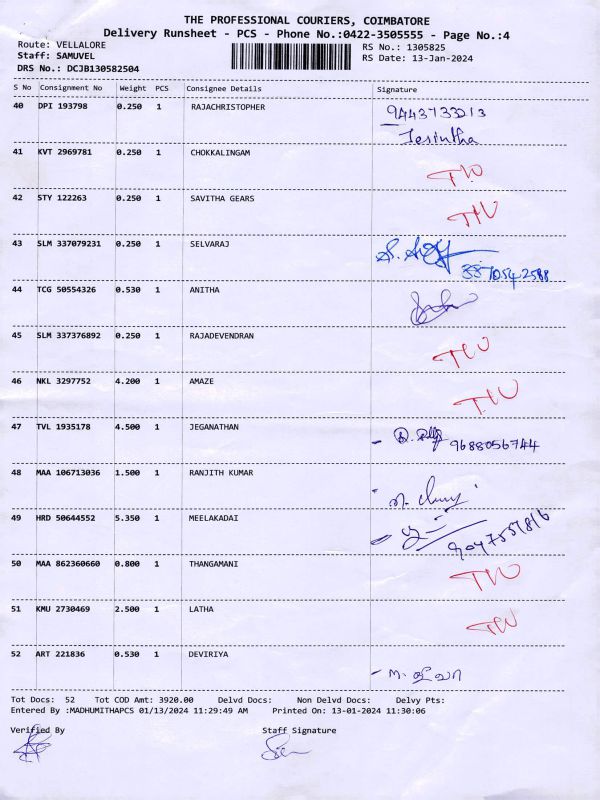 THE PROFESSIONAL COURIERS, COIMBATORE
Delivery Runsheet - PCS - Phone No.:0422-3505555 - Page No.:4
Route: VELLALORE
Staff: SAMUVEL
DRS No.: DCJB130582504
RS No.: 1305825
RS Date: 13-Jan-2024
S No Consignment No Weight PCS Consignee Details Signature
40 DPI 193798 0.250 1 RAJACHRISTOPHER
41 KVT 2969781 0.250 1 CHOKKALINGAM
42 STY 122263 0.250 1 SAVITHA GEARS
43 SLM 337079231 0.250 1 SELVARAJ
44 TCG 50554326 0.530 1 ANITHA
45 SLM 337376892 0.250 1 RAJADEVENDRAN
46 NKL 3297752 4.200 1 AMAZE
47 TVL 1935178 4.500 1 JEGANATHAN 9688056744
48 MAA 106713036 1.500 1 RANJITH KUMAR
49 HRD 50644552 5.350 1 MEELAKADAI
50 MAA 862360660 0.800 1 THANGAMANI
51 KMU 2730469 2.500 1 LATHA
52 ART 221836 0.530 1 DEVIRIYA
Tot Docs: 52 Tot COD Amt: 3920.00 Delvd Docs: Non Delvd Docs: Delvy Pts:
Entered By :MADHUMITHAPCS 01/13/2024 11:29:49 AM Printed On: 13-01-2024 11:30:06
Verified By Staff Signature